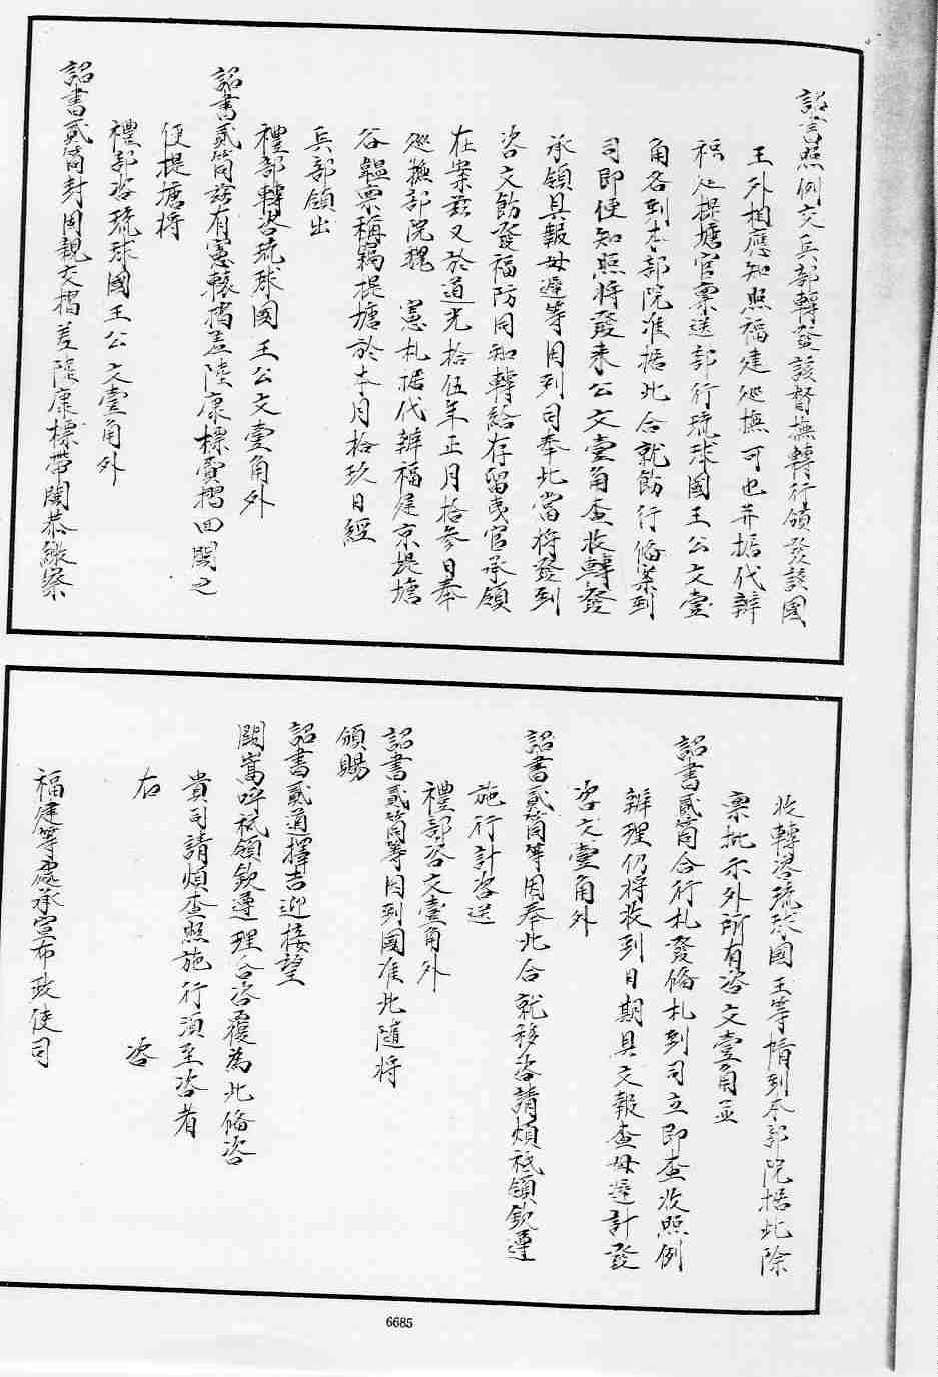 詔書照例交兵部轉發該督撫轉行頒發該國
王外相應知照福建巡撫可也并据代辦
福建提塘官禀送部行琉球國王公文壹
角各到本部院准据此合就飭行俻案到
司即便知照將發来公文壹角查收轉發
承領具報毋遲等因到司奉此當將發到
咨文飭發福防同知轉給存留夷官承領
在案兹又於道光拾伍年正月拾参日奉
廵撫部院魏　憲札据代辦福建京堤塘
谷韞票稱竊提塘於本月拾玖日經
兵部領出
禮部轉咨琉球國王公文壹角外
詔書貳筒兹有憲轅摺差陸康標賫摺回閩之
便提塘將
禮部咨琉球國王公文壹角外
詔書貳筒封固親交摺差陸康標帶閩恭繳案
收轉咨琉球國王等情到本部院据此除
禀批示外所有咨文壹角並
詔書貳筒合行札發俻札到司立即查收照例
辦理仍將收到日期具文報查毋遲計發
咨文壹角外
詔書貳筒等因奉此合就移咨請煩祗領欽遵
施行計咨送
禮部咨文壹角外
詔書貳筒等因到國准此隨將
頒賜
詔書貳通擇吉迎接望
闕嵩呼祗領欽遵理合咨覆為此俻咨
貴司請煩查照施行須至咨者
右　　　　　咨
福建等處承宣布政使司
6685